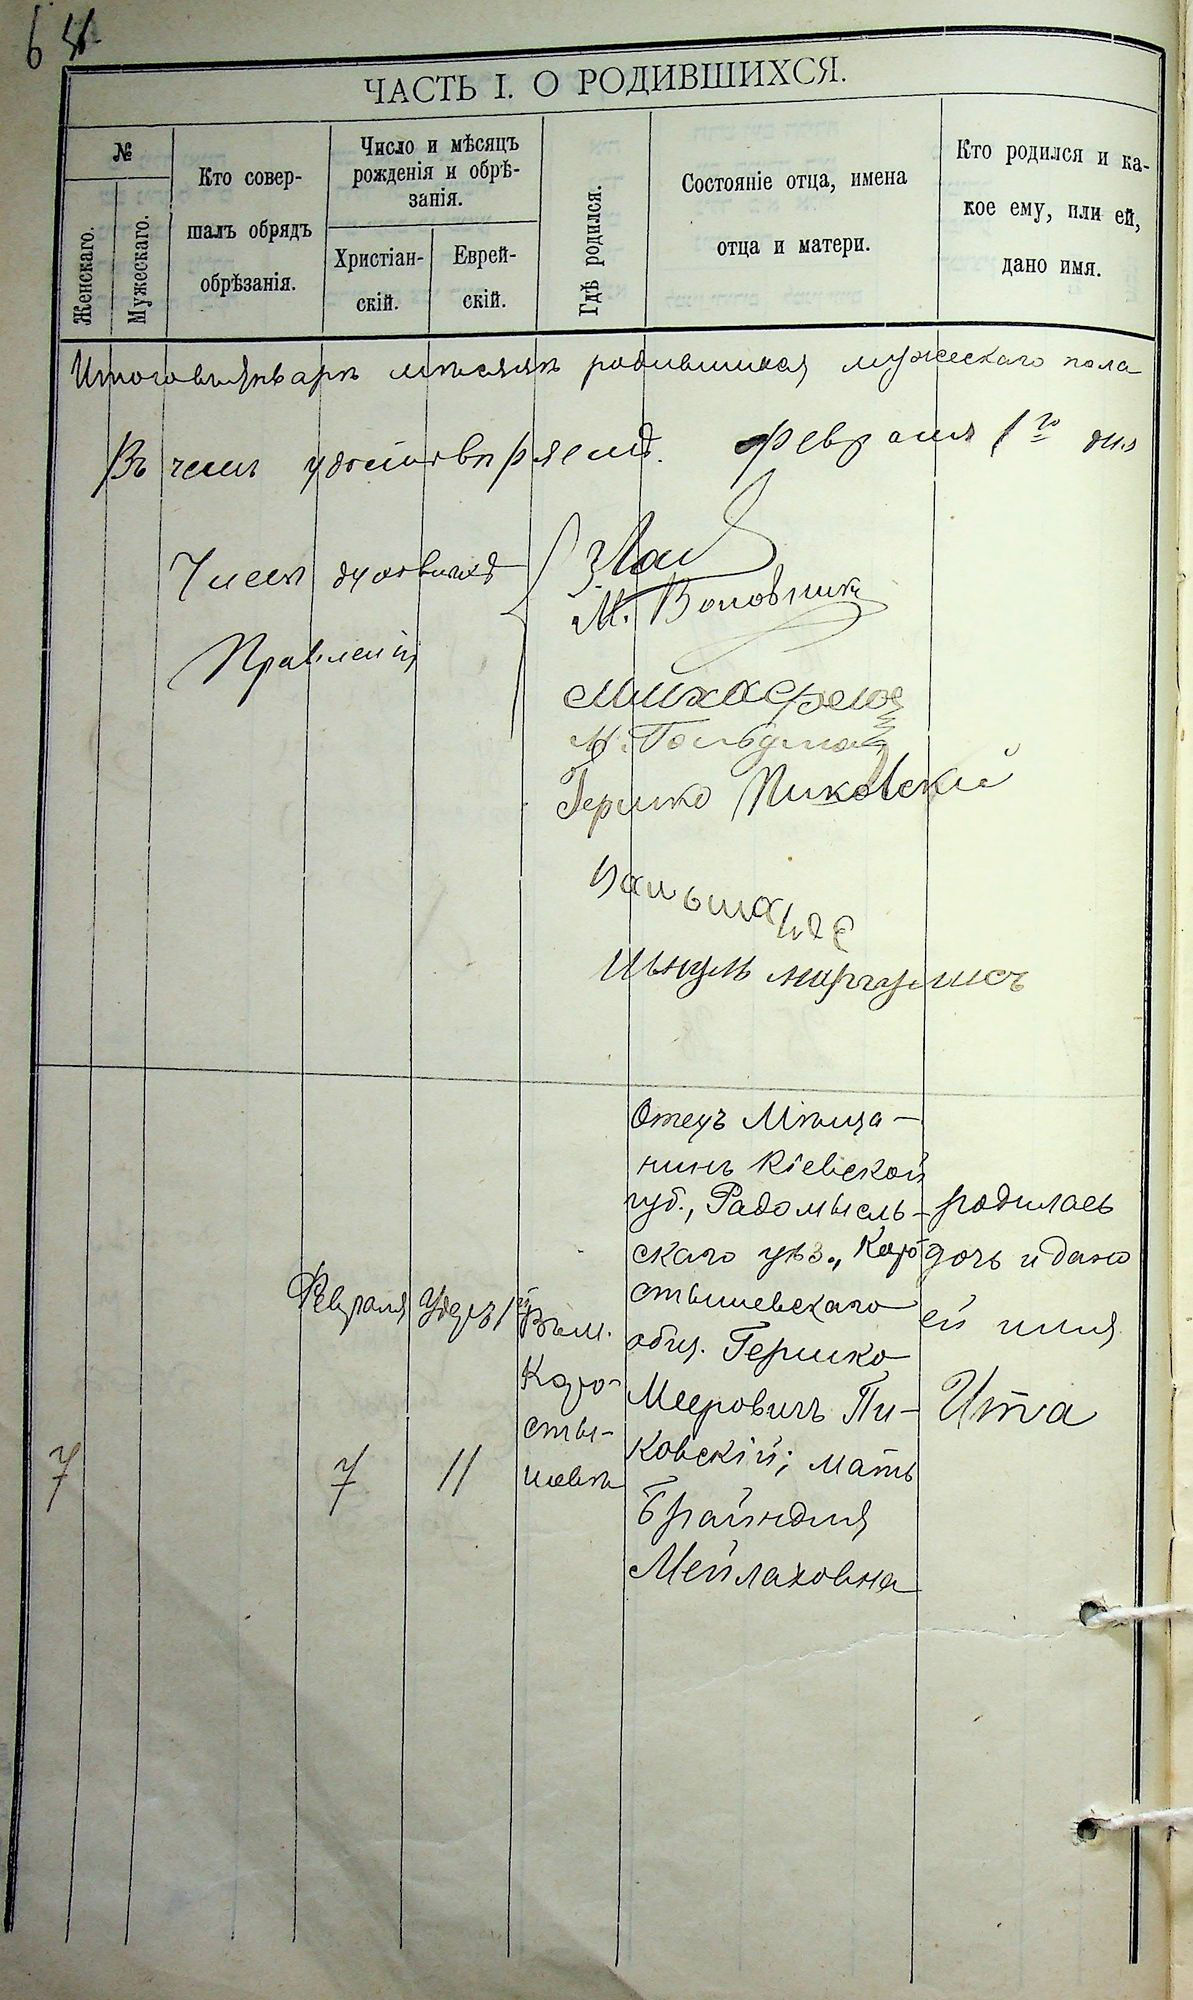 6
ЧАСТЬ I. О РОДИВШИХСЯ.
№
Женскаго.
Мужескаго.
Кто совер-
шалъ обрядъ
обрѣзанія.
Число и мѣсяцъ
рожденія и обрѣ-
занія.
Христіан-
скій.
Еврей-
скій.
Гдѣ родился.
Состояніе отца, имена
отца и матери.
Кто родился и ка-
кое ему, или ей,
дано имя.
Итого въ Январѣ мѣсяцѣ родившихся мужескаго пола
Въ чемъ удостовѣряемъ. Февраля 1го дня
М. Воловникъ
М. Гольдман
Гершко Пиковскій
маргулисъ
7
Февраля
7
11
Въ м.
Коро-
сты-
шевѣ
Отецъ Мѣща-
нинъ Кіевской
губ., Радомысль-
скаго уѣз., Коро-
стышевскаго
общ. Гершко
Мееровичъ Пи-
ковскій; мать
Брайндля
Мейлаховна
родилась
дочь и дано
ей имя
Ита